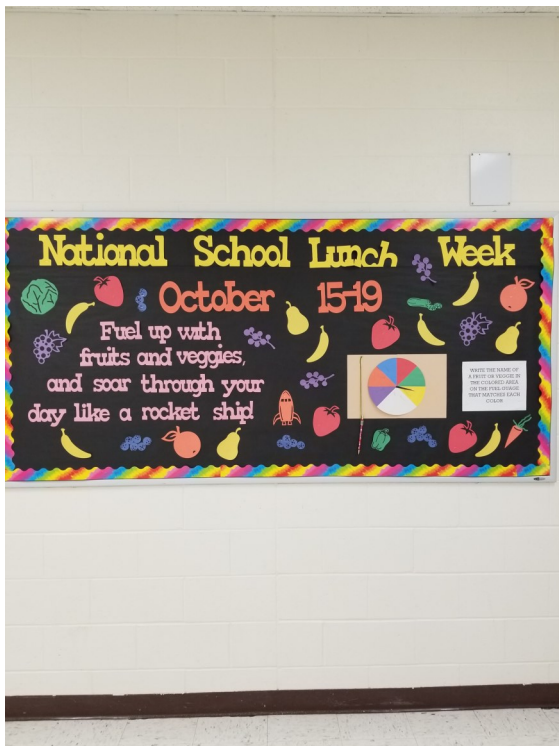 National School Lunch Week
October 15-19
Fuel up with
fruits and veggies,
and soar through your
day like a rocket ship!
WRITE THE NAME OF
A FRUIT OR VEGGIE IN
THE COLORED AREA
ON THE FUEL GUAGE
THAT MATCHES EACH
COLOR